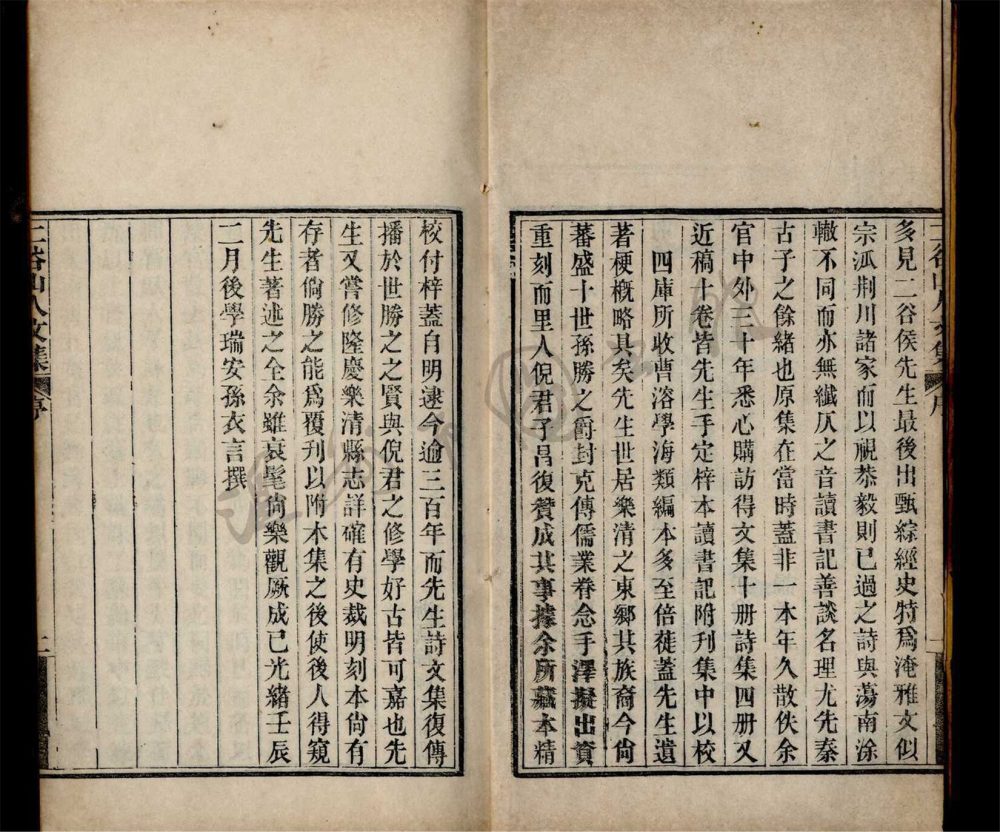 多見二谷侯先生最後出甄綜經史特爲淹雅文似
宗派荆川諸家而以視恭毅則已過之詩與蕩南涂
轍不同而亦無纖仄之音讀書記善談名理尤先秦
古子之餘緒也原集在當時蓋非一本年久散佚余
官中外三十年悉心購訪得文集十册詩集四册又
近稿十卷皆先生手定梓本讀書記附刊集中以校
四庫所收曹溶學海類編本多至倍蓰蓋先生遺
著梗概略具矣先生世居樂清之東鄉其族裔今尙
蕃盛十世孫勝之爵封克傳儒業眷念手澤擬出資
重刻而里人倪君子昌復贊成其事據余所藏本精
校付梓蓋自明逮今逾三百年而先生詩文集復傳
播於世勝之之賢與倪君之修學好古皆可嘉也先
生又嘗修隆慶樂清縣志詳確有史裁明刻本尙有
存者倘勝之能爲覆刊以附木集之後使後人得窺
先生著述之全余雖衰髦尙樂觀厥成已光緒壬辰
二月後學瑞安孫衣言撰
二谷山人文集
序
二